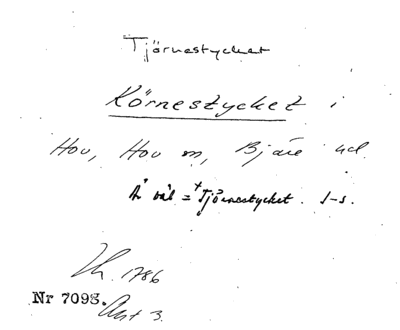 Tjörnestycket
Körnestycket i
Hov, Hov sn, Bjäre hd.
Är väl = *Tjörnestycket. J-s.
Lh. 1786
Nr 7098. Akt 3.